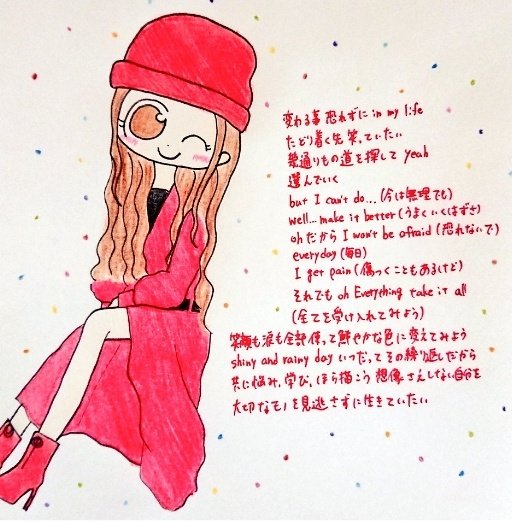 変わる事恐れずに in my life
たどり着く先 笑っていたい
幾通りもの道を探して yeah
選んでいく
but I can't do...(今は無理でも)
well...make it better(うまくいくはずさ)
ohだから I won't be afraid(恐れないで)
everyday(毎日)
I get pain(傷つくこともあるけど)
それでも oh Everything take it all
(全てを受け入れてみよう)
笑顔も涙も全部使って鮮やかな色に変えてみよう
shiny and rainy day いつだってその繰り返しだから
共に悩み、学び、ほら描こう 想像さえしない自分を
大切なモノを見逃さずに生きていたい